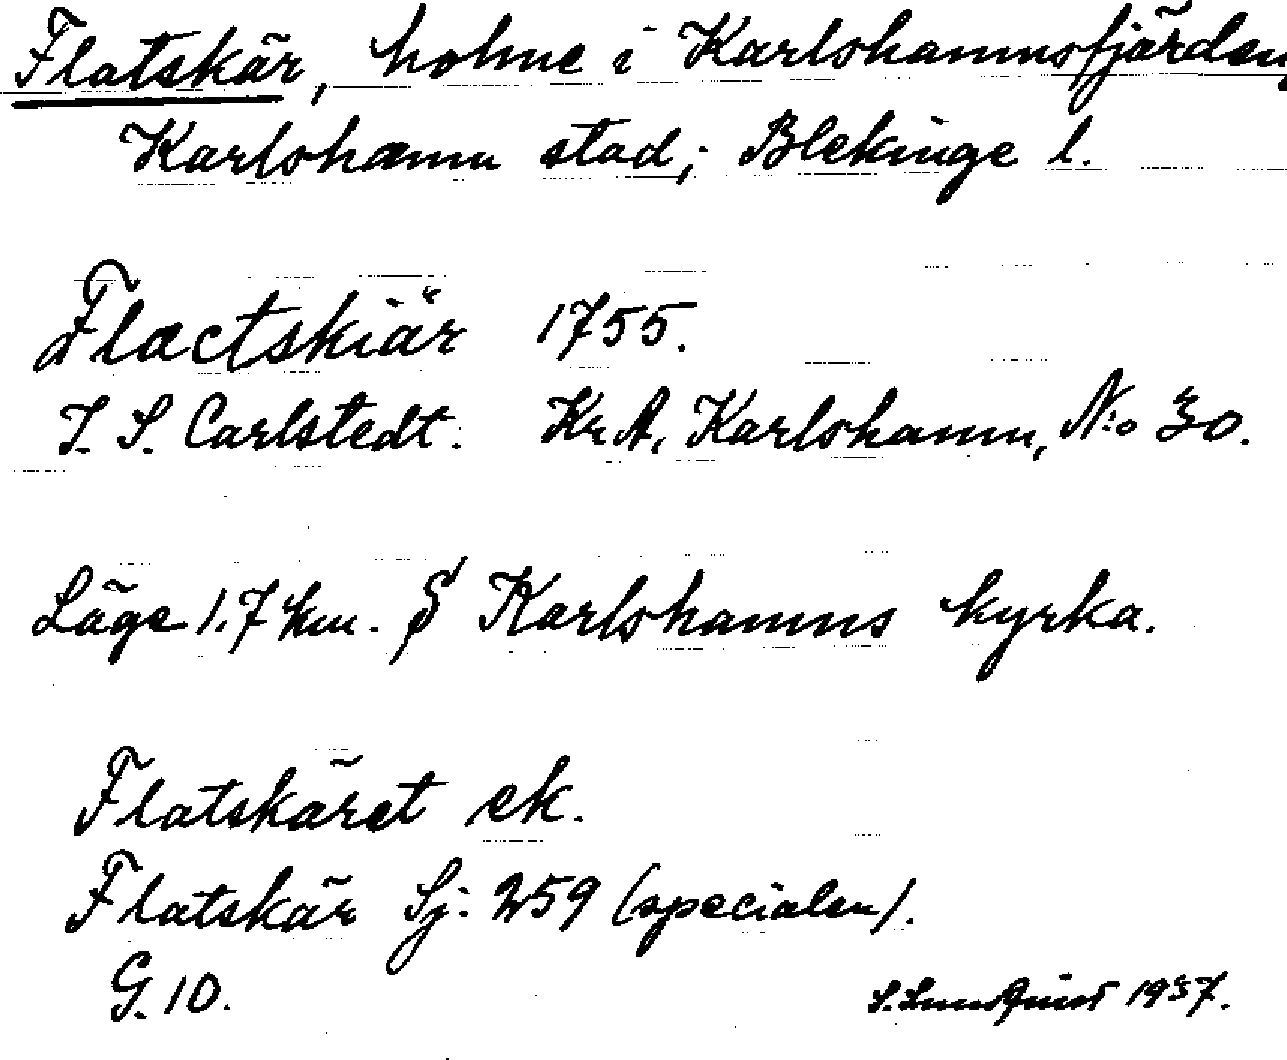 Flatskär, holme i Karlshamnsfjärden,
Karlshamn stad; Blekinge l.
Flactskiär 1755.
I. S. Carlstedt. Kr.A. Karlshamn, No 30.
Läge 1,7 km. S Karlshamns kyrka.
Flatskäret ek.
Flatskär Sj. 259 (specialen).
G. 10.
S. Lundquist 1937.